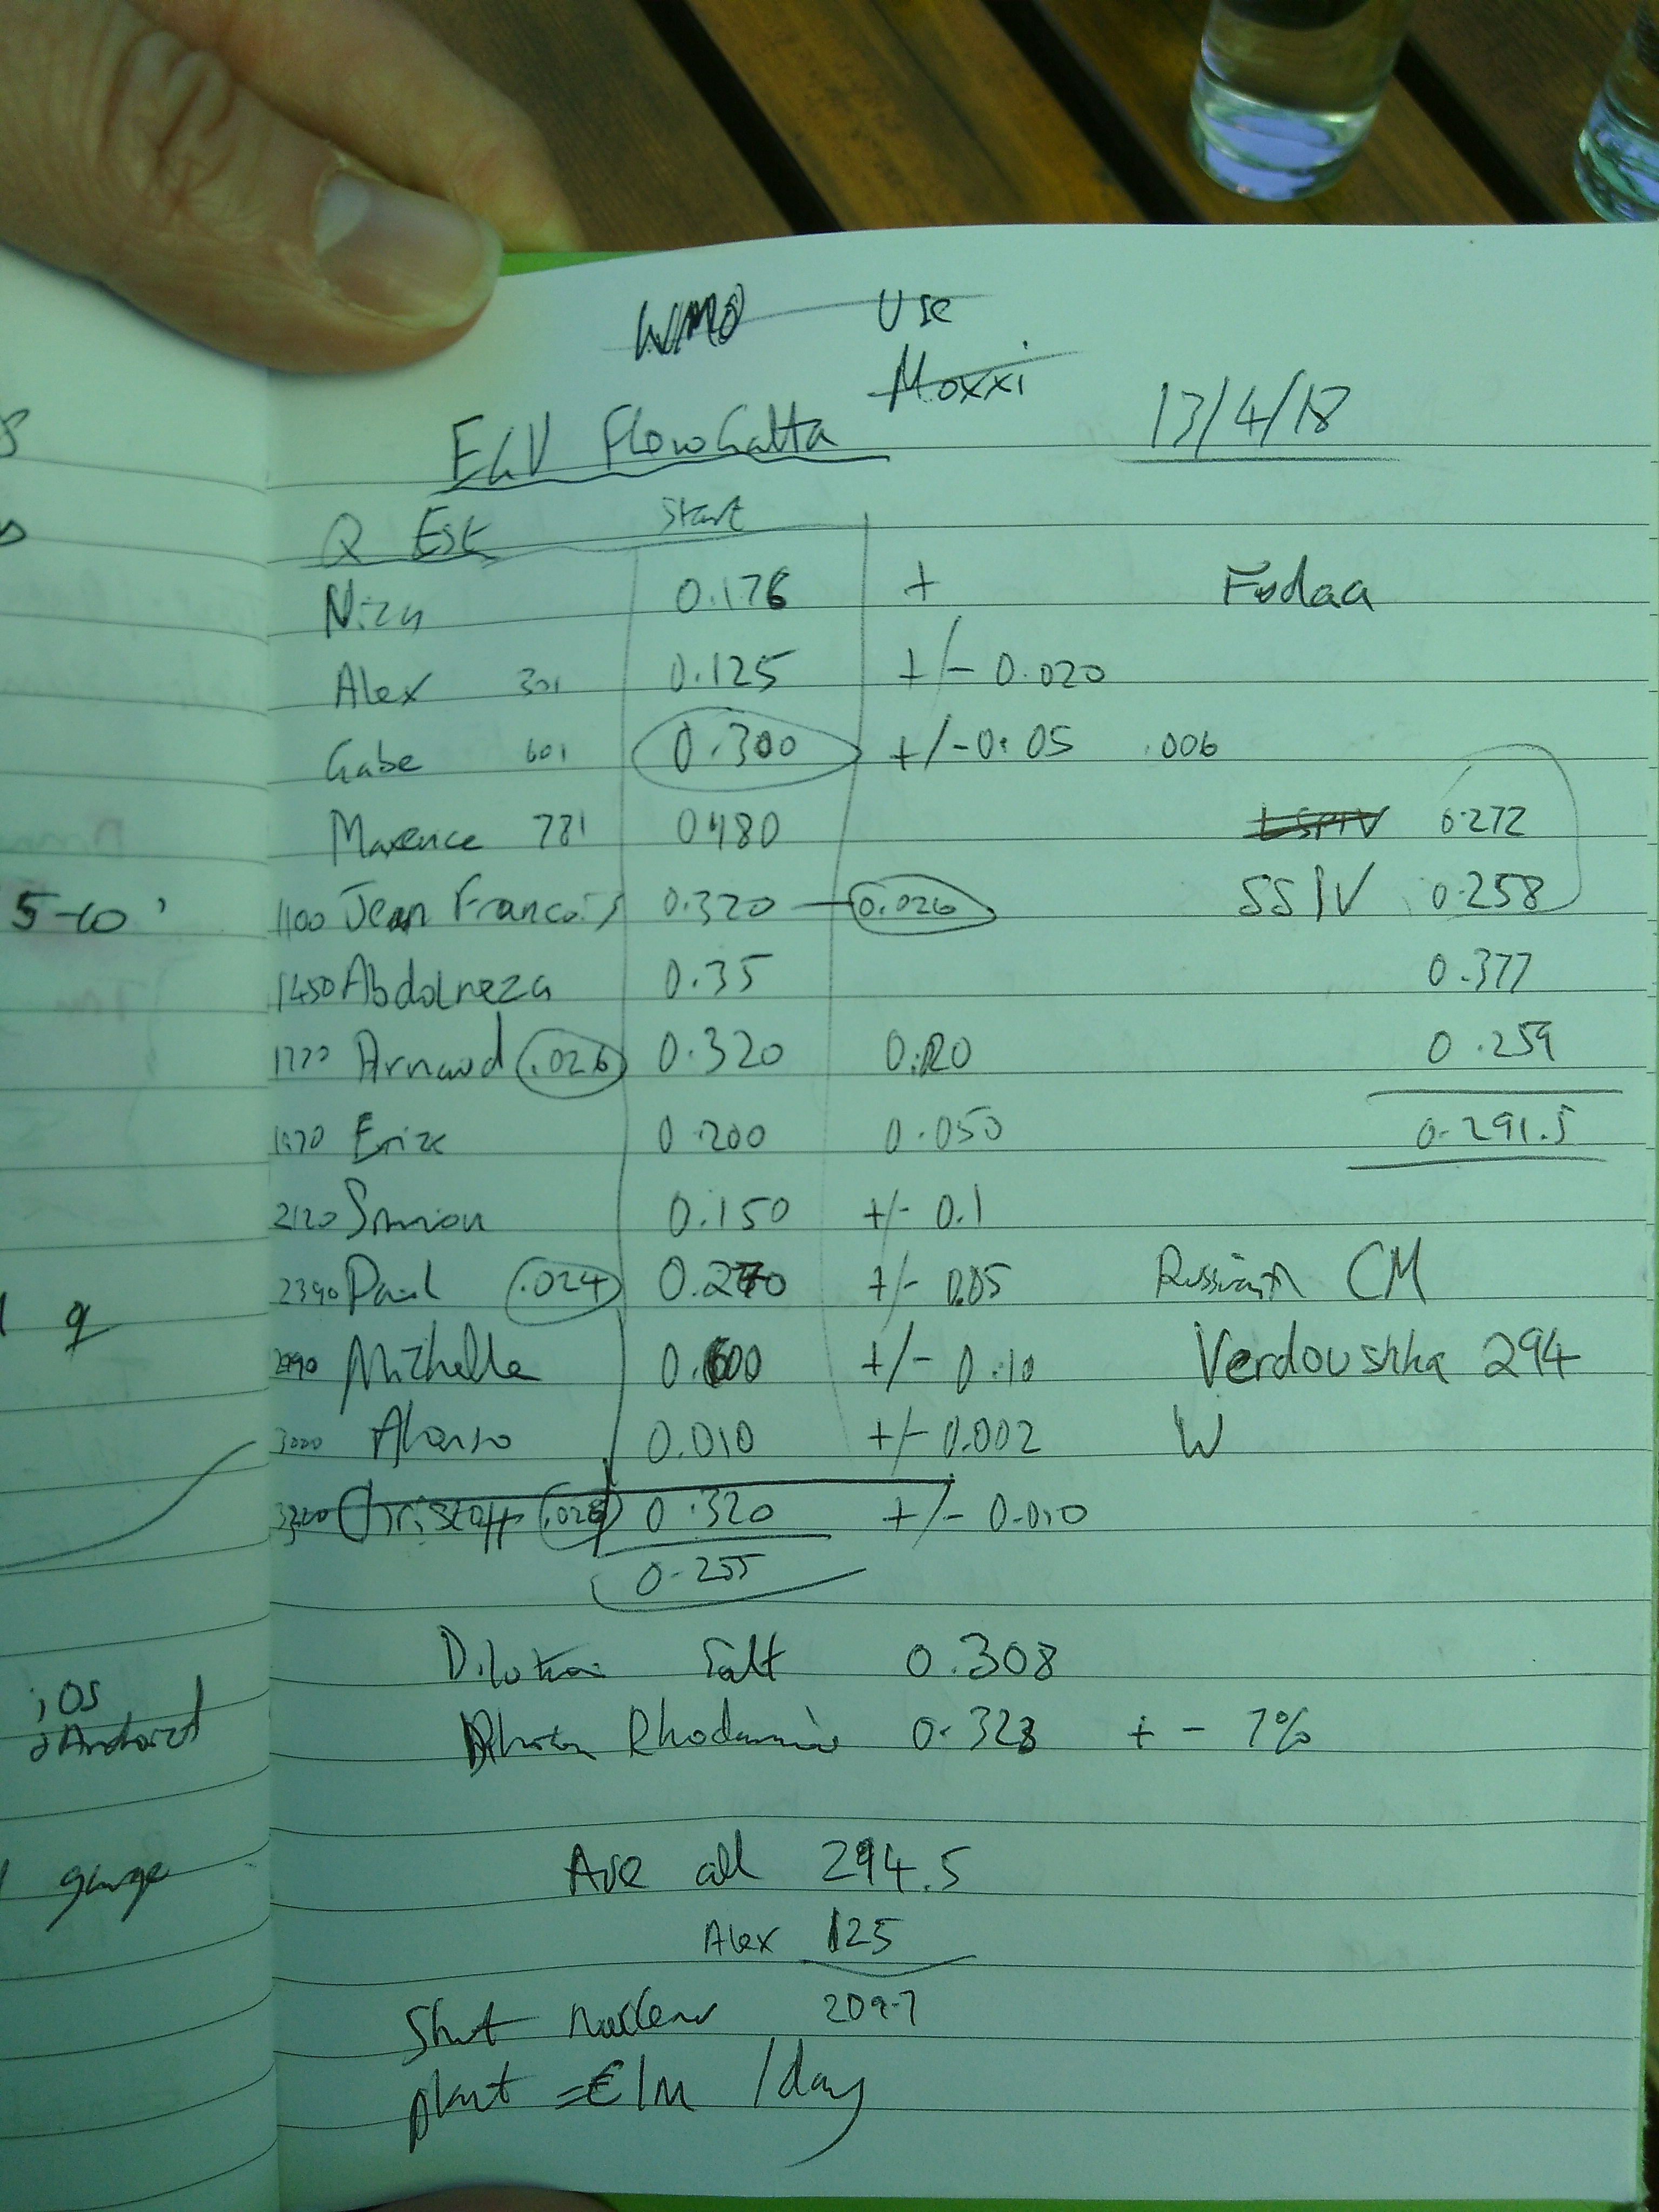 WMO Use
Moxxi
EGU Flow Gatta 13/4/18
Q Est Start
Niza 0.176 + Fudaa
Alex 301 0.125 +/- 0.020
Gabe 601 0.300 +/- 0.05 .006
Maxence 781 0.480 LSPIV 0.272
5-10' 1100 Jean Francois 0.320 0.026 SSIV 0.258
1450 Abdolreza 0.35 0.377
1770 Arnaud .026 0.320 0.020 0.259
1970 0.200 0.050 0.291.5
2120 0.150 +/- 0.1
2390 Paul .024 0.270 +/- 0.05 CM
2990 Michelle 0.600 +/- 0.10 Verdoushka 294
3000 Alonso 0.010 +/- 0.002 W
Christoph 0.320 +/- 0.010
0.255
Dilution Salt 0.308
iOS
Rhodamine 0.323 + - 7%
Ave all 294.5
gauge
Alex 125
209.7
Shut nuclear
plant = €1M /day